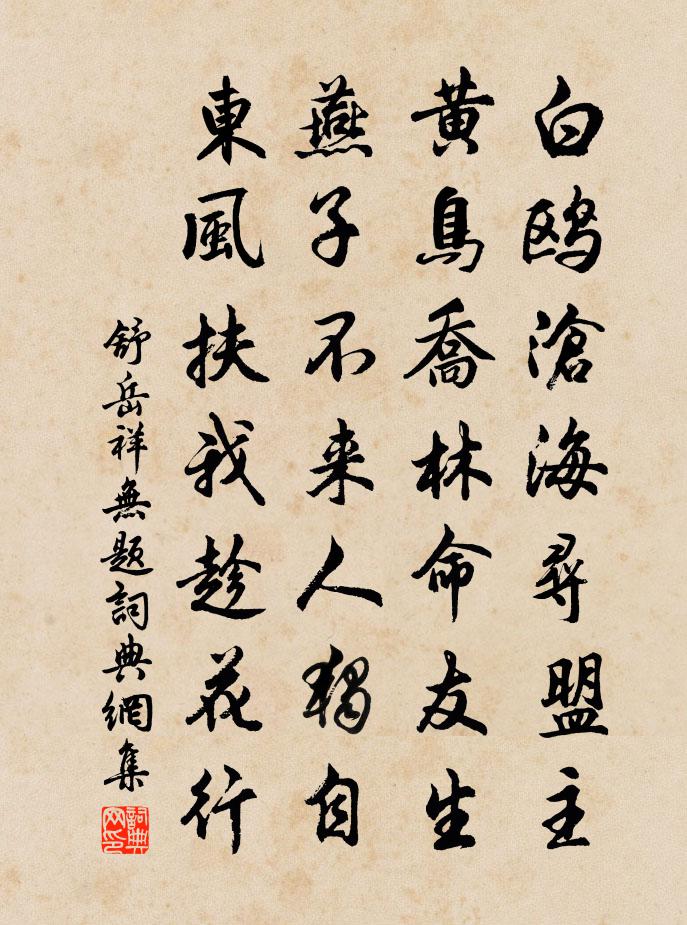 白鸥滄海尋盟主
黄鳥喬林命友生
燕子不来人獨自
東風扶我趁花行
舒岳祥無题詞典網集
詞典网印